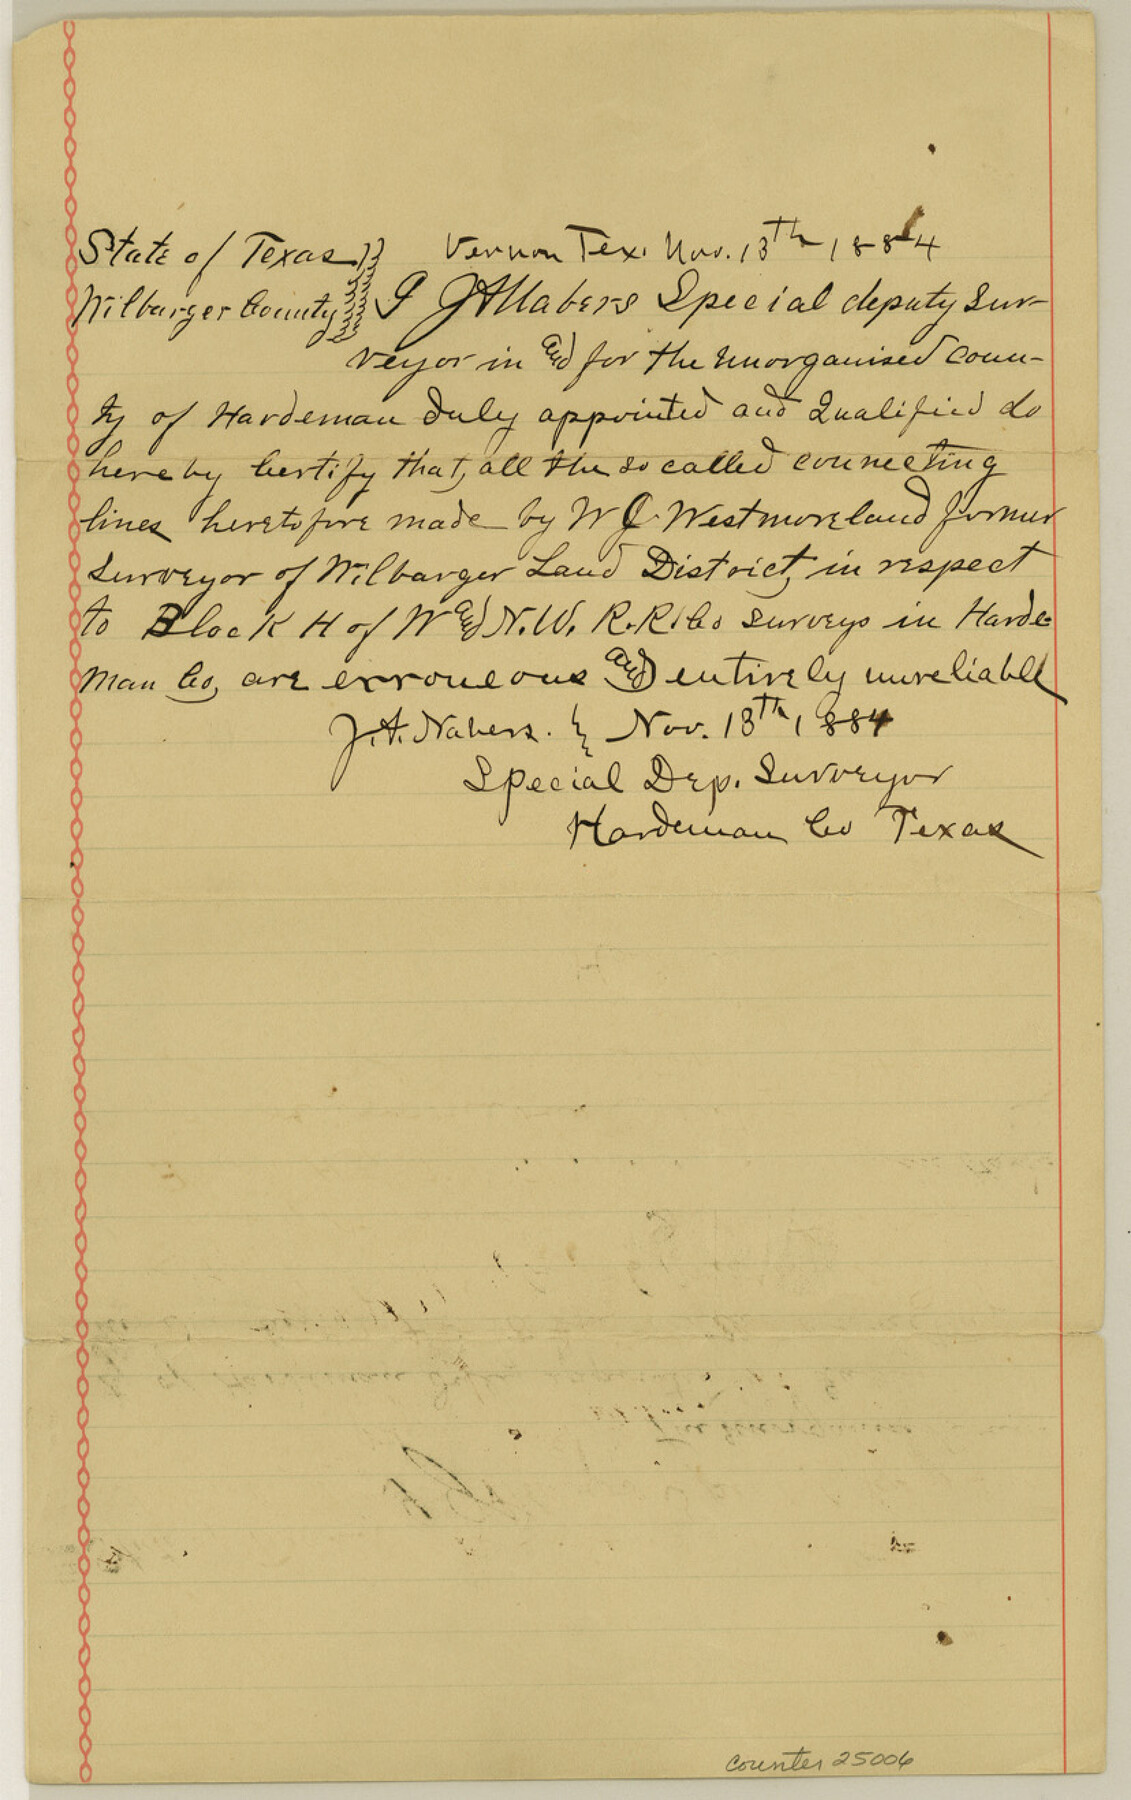 State of Texas Vernon Tex. Nov. 13th 1884
Wilbarger County I J A Nabers Special deputy Sur-
veyor in and for the Unorganised Coun-
ty of Hardeman duly appointed and Qualified do
hereby Certify that, all the so called connecting
lines heretofore made by W J Westmoreland former
Surveyor of Wilbarger Land District, in respect
to Block H of W and N.W. R.R. Co surveys in Harde
man Co, are erroneous and entirely unreliable
J. A. Nabers. Nov. 13th, 1884
Special Dep. Surveyor
Hardeman Co Texas
counter 25006